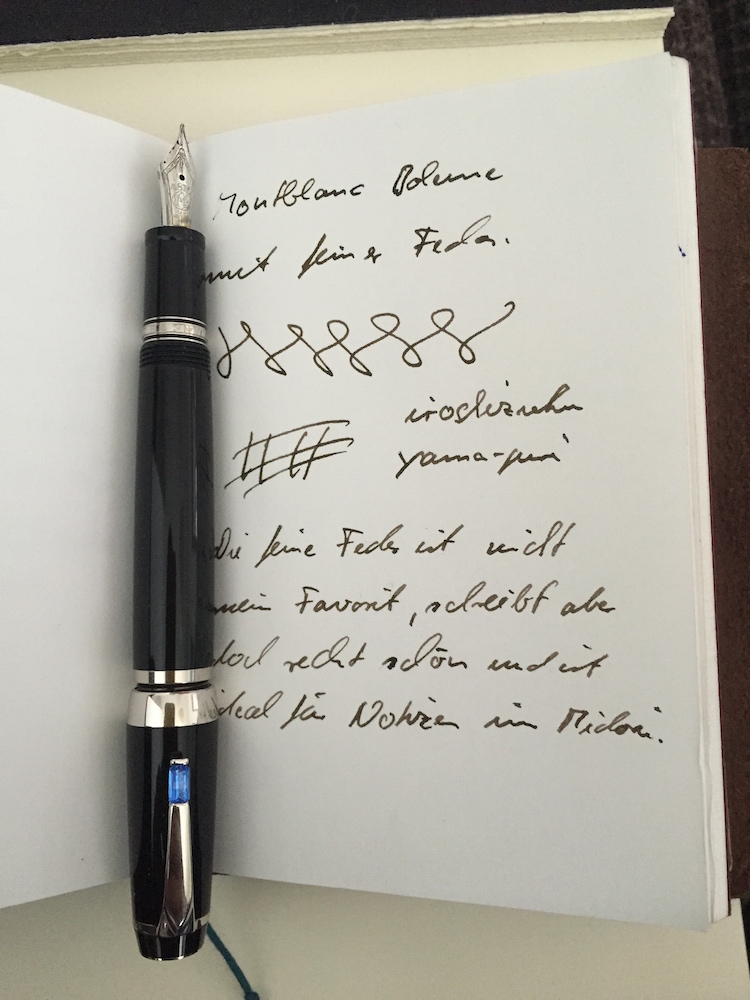 Montblanc Boheme
mit feiner Feder.
iroshizuku
yama-guri
Die feine Feder ist nicht
mein Favorit, schreibt aber
doch recht schön und ist
ideal für Notizen im Midori.